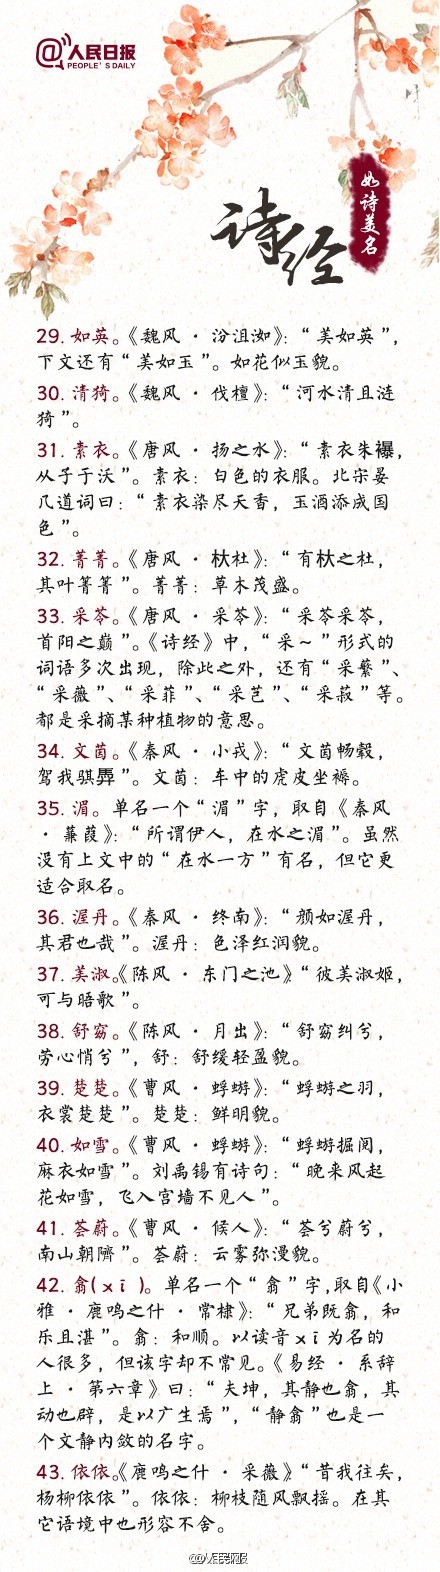 @人民日报
PEOPLE'S DAILY
如诗美名
诗经
29. 如英。《魏风 · 汾沮洳》：“美如英”，
下文还有“美如玉”。如花似玉貌。
30. 清猗。《魏风 · 伐檀》：“河水清且涟
猗”。
31. 素衣。《唐风 · 扬之水》：“素衣朱襮，
从子于沃”。素衣：白色的衣服。北宋晏
几道词曰：“素衣染尽天香，玉酒添成国
色”。
32. 菁菁。《唐风 · 杕杜》：“有杕之杜，
其叶菁菁”。菁菁：草木茂盛。
33. 采苓。《唐风 · 采苓》：“采苓采苓，
首阳之巅”。《诗经》中，“采～”形式的
词语多次出现，除此之外，还有“采蘩”、
“采薇”、“采菲”、“采芑”、“采菽”等。
都是采摘某种植物的意思。
34. 文茵。《秦风 · 小戎》：“文茵畅毂，
驾我骐馵”。文茵：车中的虎皮坐褥。
35. 湄。单名一个“湄”字，取自《秦风
· 蒹葭》：“所谓伊人，在水之湄”。虽然
没有上文中的“在水一方”有名，但它更
适合取名。
36. 渥丹。《秦风 · 终南》：“颜如渥丹，
其君也哉”。渥丹：色泽红润貌。
37. 美淑。《陈风 · 东门之池》“彼美淑姬，
可与晤歌”。
38. 舒窈。《陈风 · 月出》：“舒窈纠兮，
劳心悄兮”，舒：舒缓轻盈貌。
39. 楚楚。《曹风 · 蜉蝣》：“蜉蝣之羽，
衣裳楚楚”。楚楚：鲜明貌。
40. 如雪。《曹风 · 蜉蝣》：“蜉蝣掘阅，
麻衣如雪”。刘禹锡有诗句：“晚来风起
花如雪，飞入宫墙不见人”。
41. 荟蔚。《曹风 · 候人》：“荟兮蔚兮，
南山朝隮”。荟蔚：云雾弥漫貌。
42. 翕(xī)。单名一个“翕”字，取自《小
雅 · 鹿鸣之什 · 常棣》：“兄弟既翕，和
乐且湛”。翕：和顺。以读音xī为名的
人很多，但该字却不常见。《易经 · 系辞
上 · 第六章》曰：“夫坤，其静也翕，其
动也辟，是以广生焉”，“静翕”也是一
个文静内敛的名字。
43. 依依。《鹿鸣之什 · 采薇》“昔我往矣，
杨柳依依”。依依：柳枝随风飘摇。在其
它语境中也形容不舍。
@人民网